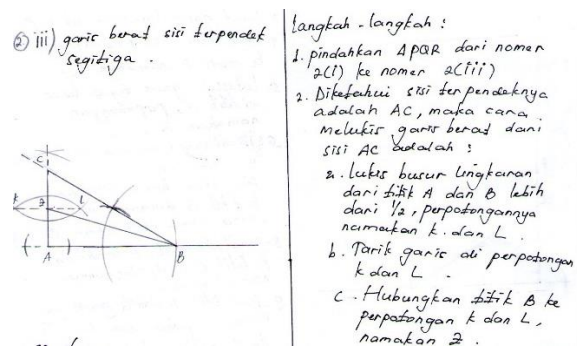 ② iii) garis berat sisi terpendek
segitiga.
C
K
Z
L
A
B
Langkah-langkah :
1. pindahkan ΔPQR dari nomer
2(i) ke nomer 2(iii)
2. Diketahui sisi terpendeknya
adalah AC, maka cara
melukis garis berat dari
sisi AC adalah :
a. lukis busur lingkaran
dari titik A dan B lebih
dari ½, perpotongannya
namakan k. dan L.
b. Tarik garis di perpotongan
k dan L.
c. Hubungkan titik B ke
perpotongan k dan L,
namakan Z.